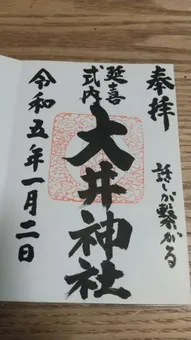 奉拝
が繋がる
延喜
式内
大井神社
令和五年一月二日